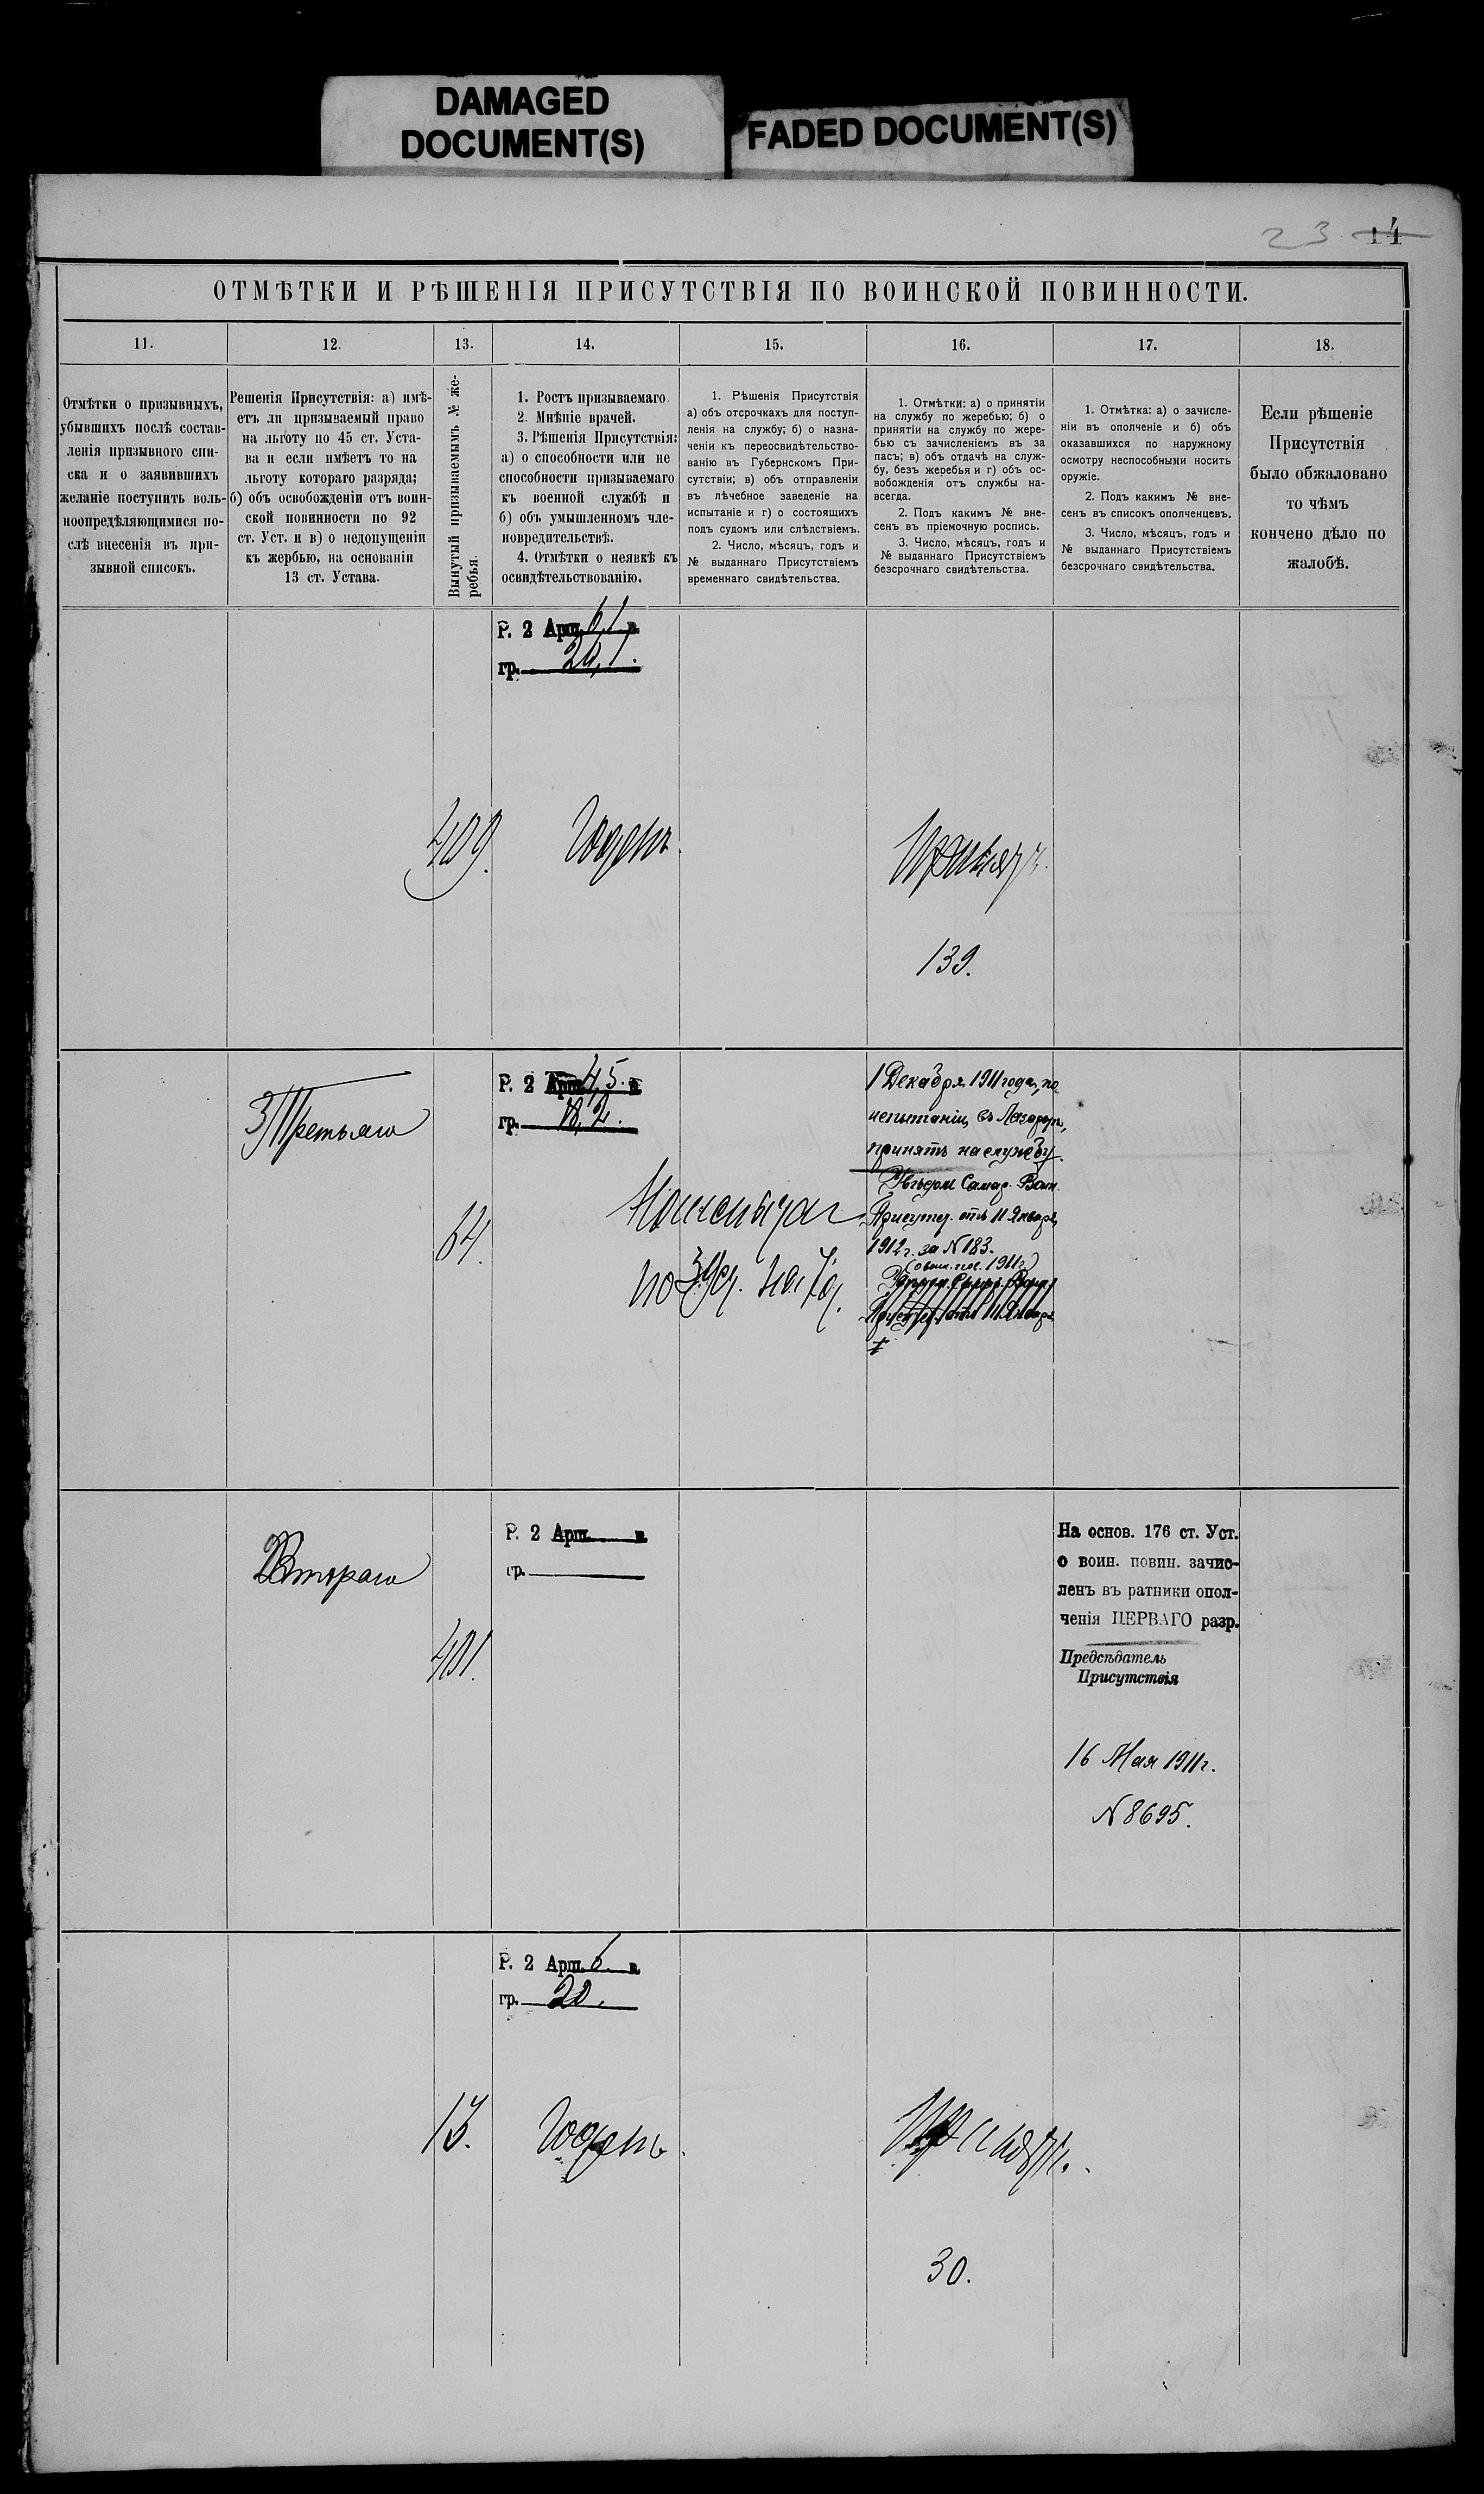 DAMAGED
DOCUMENT(S)
FADED DOCUMENT(S)
23 14
ОТМѢТКИ И РѢШЕНІЯ ПРИСУТСТВІЯ ПО ВОИНСКОЙ ПОВИННОСТИ.
11.
12.
13.
14.
15.
16.
17.
18.
Отмѣтки о призывныхъ,
убывшихъ послѣ состав-
ленія призывного спи-
ска и о заявившихъ
желаніе поступить воль-
ноопредѣляющимися по-
слѣ внесенія въ при-
зывной списокъ.
Решенія Присутствія: а) имѣ-
етъ ли призываемый право
на льготу по 45 ст. Уста-
ва и если имѣетъ то на
льготу котораго разряда;
б) объ освобожденіи отъ воин-
ской повинности по 92
ст. Уст. и в) о недопущеніи
къ жербью, на основаніи
13 ст. Устава.
Вынутый призываемымъ № же-
ребья.
1. Ростъ призываемаго.
2. Мнѣніе врачей.
3. Рѣшенія Присутствія:
а) о способности или не
способности призываемаго
къ военной службѣ и
б) объ умышленномъ чле-
новредительствѣ.
4. Отмѣтки о неявкѣ къ
освидѣтельствованію.
1. Рѣшенія Присутствія
а) объ отсрочкахъ для поступ-
ленія на службу; б) о назна-
ченіи къ переосвидѣтельство-
ванію въ Губернскомъ При-
сутствіи; в) объ отправленіи
въ лѣчебное заведеніе на
испытаніе и г) о состоящихъ
подъ судомъ или слѣдствіемъ.
2. Число, мѣсяцъ, годъ и
№ выданнаго Присутствіемъ
временнаго свидѣтельства.
1. Отмѣтки: а) о принятіи
на службу по жеребью; б) о
принятіи на службу по жере-
бью съ зачисленіемъ въ за
пасъ; в) объ отдачѣ на служ-
бу, безъ жеребья и г) объ ос-
вобожденія отъ службы на-
всегда.
2. Подъ какимъ № вне-
сенъ въ пріемочную роспись.
3. Число, мѣсяцъ, годъ и
№ выданнаго Присутствіемъ
безсрочнаго свидѣтельства.
1. Отмѣтка: а) о зачисле-
ніи въ ополченіе и б) объ
оказавшихся по наружному
осмотру неспособными носить
оружіе.
2. Подъ какимъ № вне-
сенъ въ списокъ ополченцевъ.
3. Число, мѣсяцъ, годъ и
№ выданнаго Присутствіемъ
безсрочнаго свидѣтельства.
Если рѣшеніе
Присутствія
было обжаловано
то чѣмъ
кончено дѣло по
жалобѣ.
Р. 2 Арш. 6,1 в
гр. 20,1.
409.
Годенъ.
Принятъ.
139.
3/Третьяго
64.
Р. 2 Арш. 4,5. в
гр. 18,2.
1 Декабря 1911 года, по
испытаніи, въ Лазарет,
принятъ на службу.
Самар. Воин.
Присутст. отъ 11 Января
1912 г. за N 183.
Присутст. отъ 11 Января
2/Втораго
401.
Р. 2 Арш. в
гр.
На основ. 176 ст. Уст.
о воин. повин. зачис-
ленъ въ ратники опол-
ченія ПЕРВАГО разр.
Предсѣдатель
Присутствія
16 Мая 1911 г.
N 8695.
Р. 2 Арш. 6. в
гр. 20.
13.
Годенъ.
Принятъ.
30.